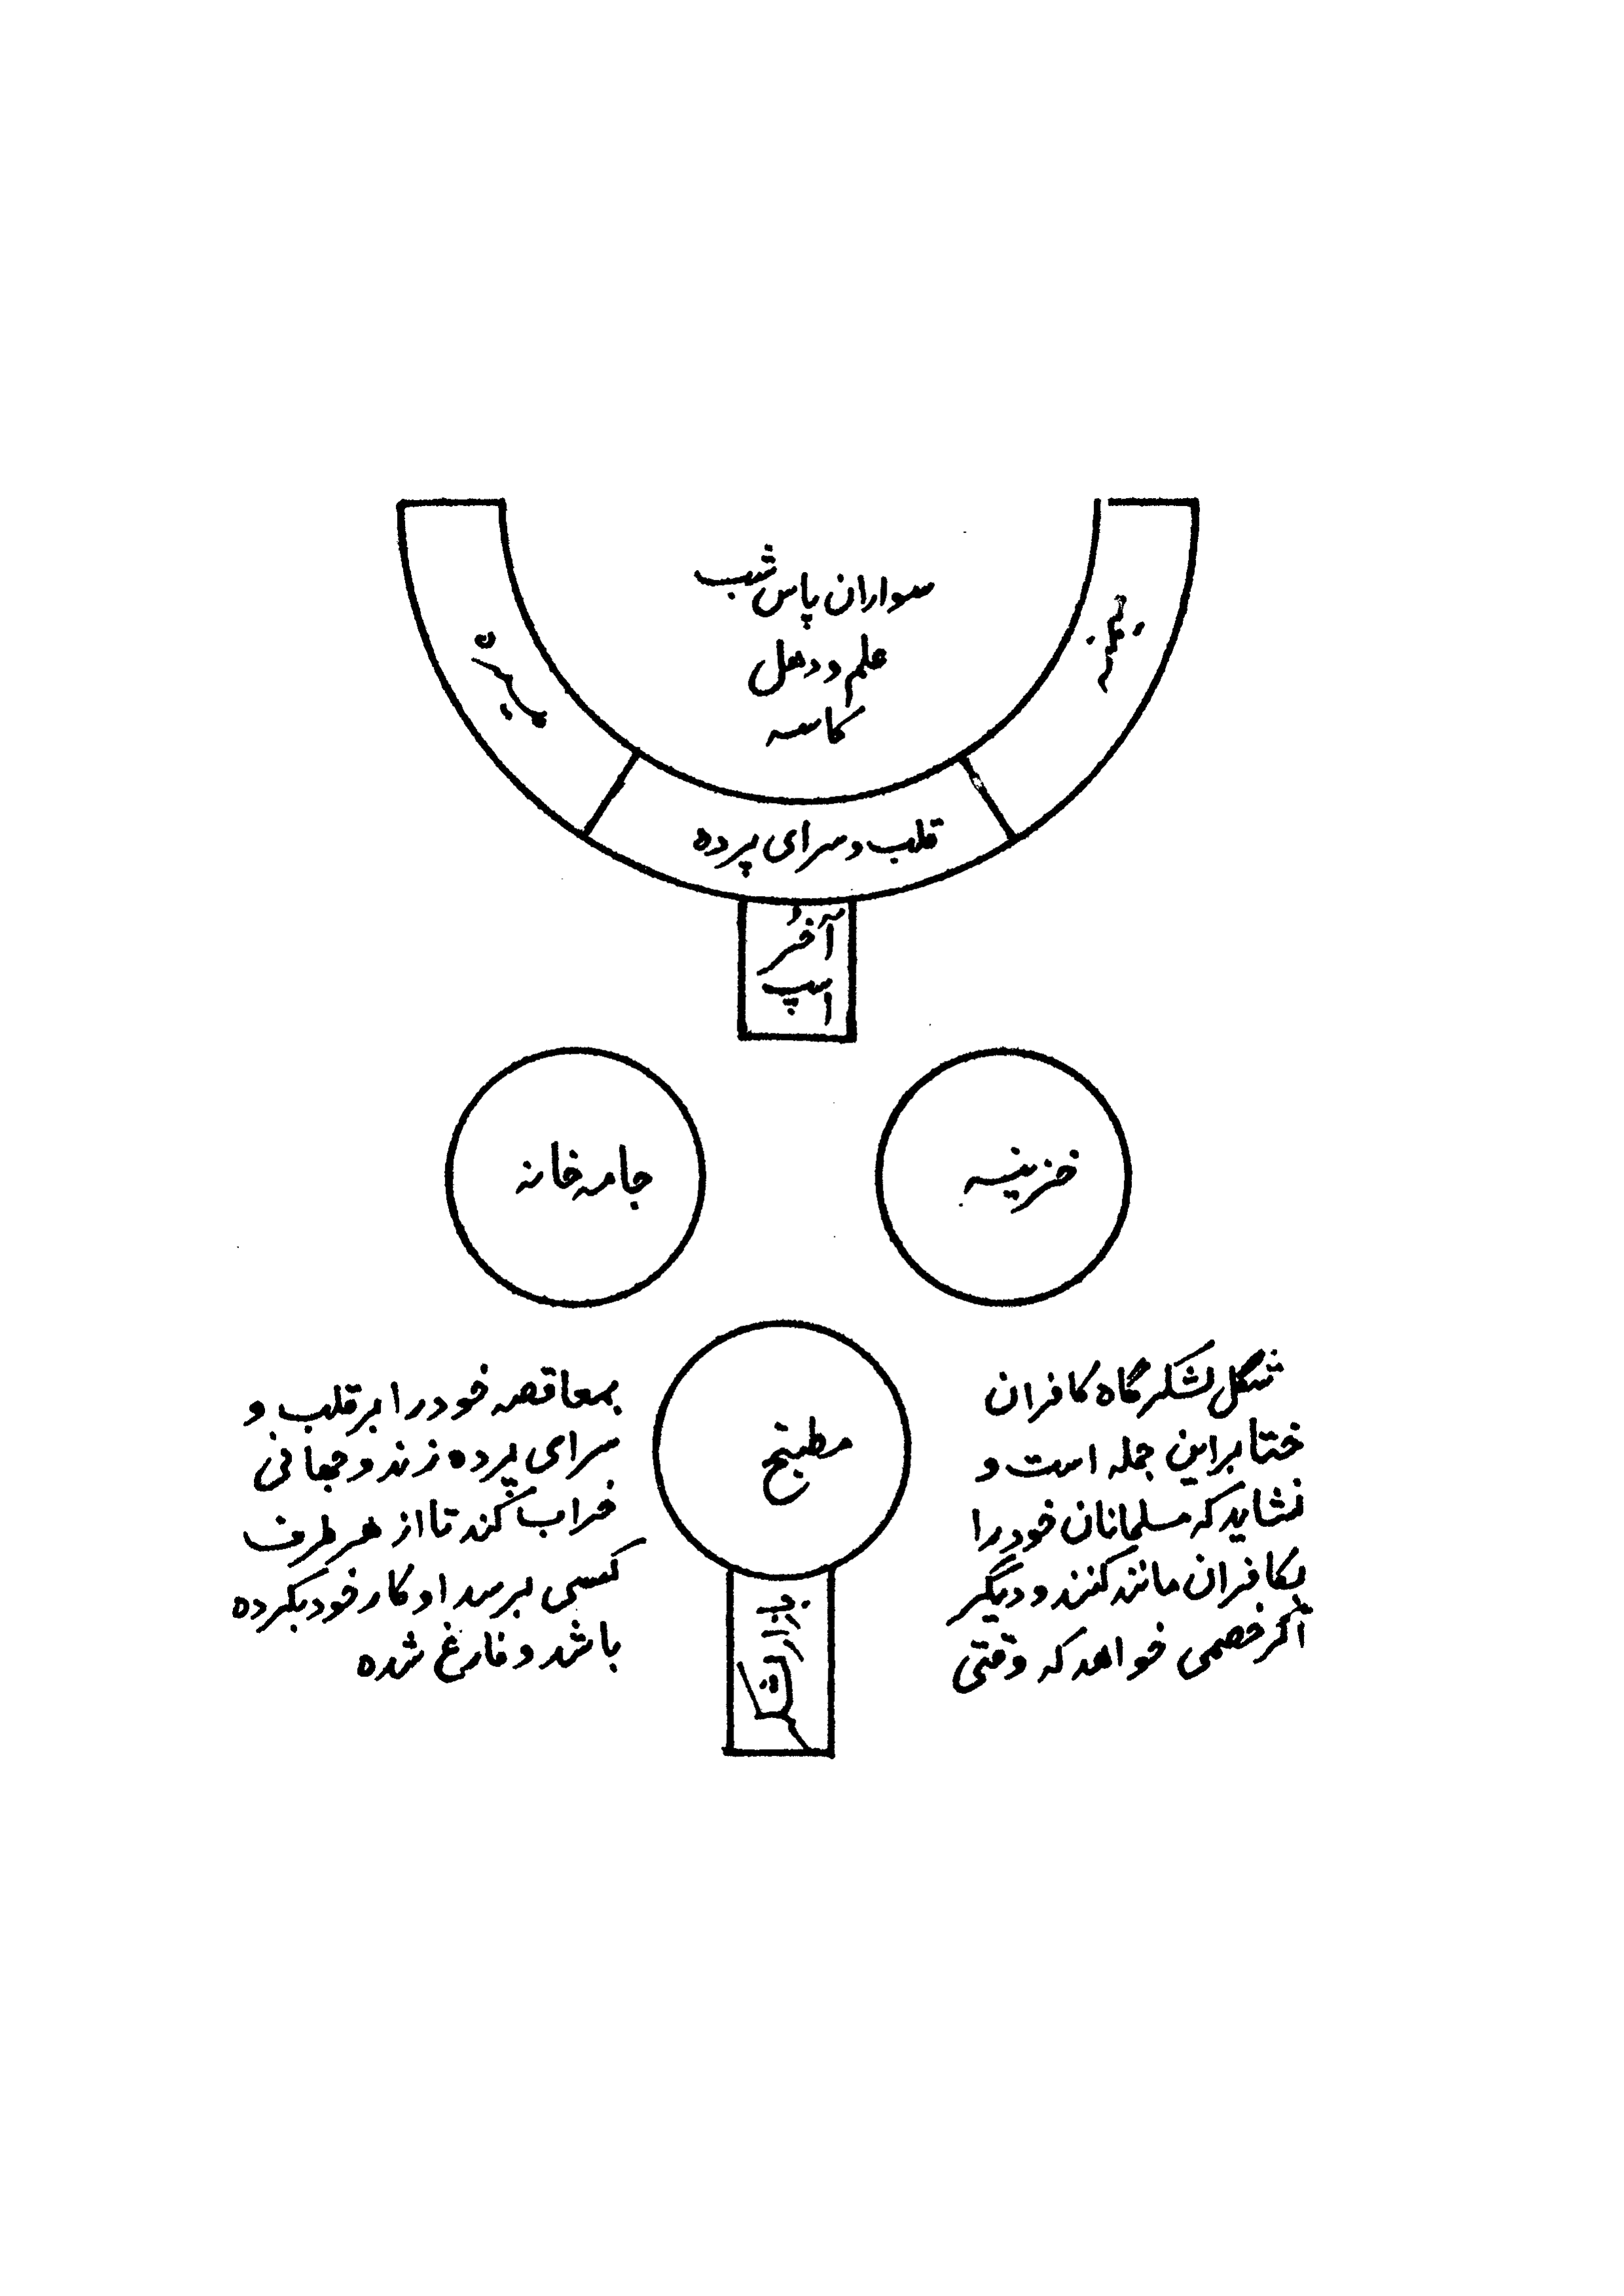 سواران پاس شب
علم و دهل
کاسه
میمنه
میسره
قلب و سرای پرده
آخُر
اسپ
خزینه
جامه خانه
مطبخ
شکل لشکرگاه کافران
ختا براین جمله است و
نشاید که مسلمانان خود را
بکافران مانند کنند و دیگر
اگر خصمی خواهد که وقتی
بمعاقصه خود را بر قلب و
سرای پرده زند و جهانی
خراب کند تا از هر طرف
کسی برسد او کار خود بکرده
باشد و فارغ شده